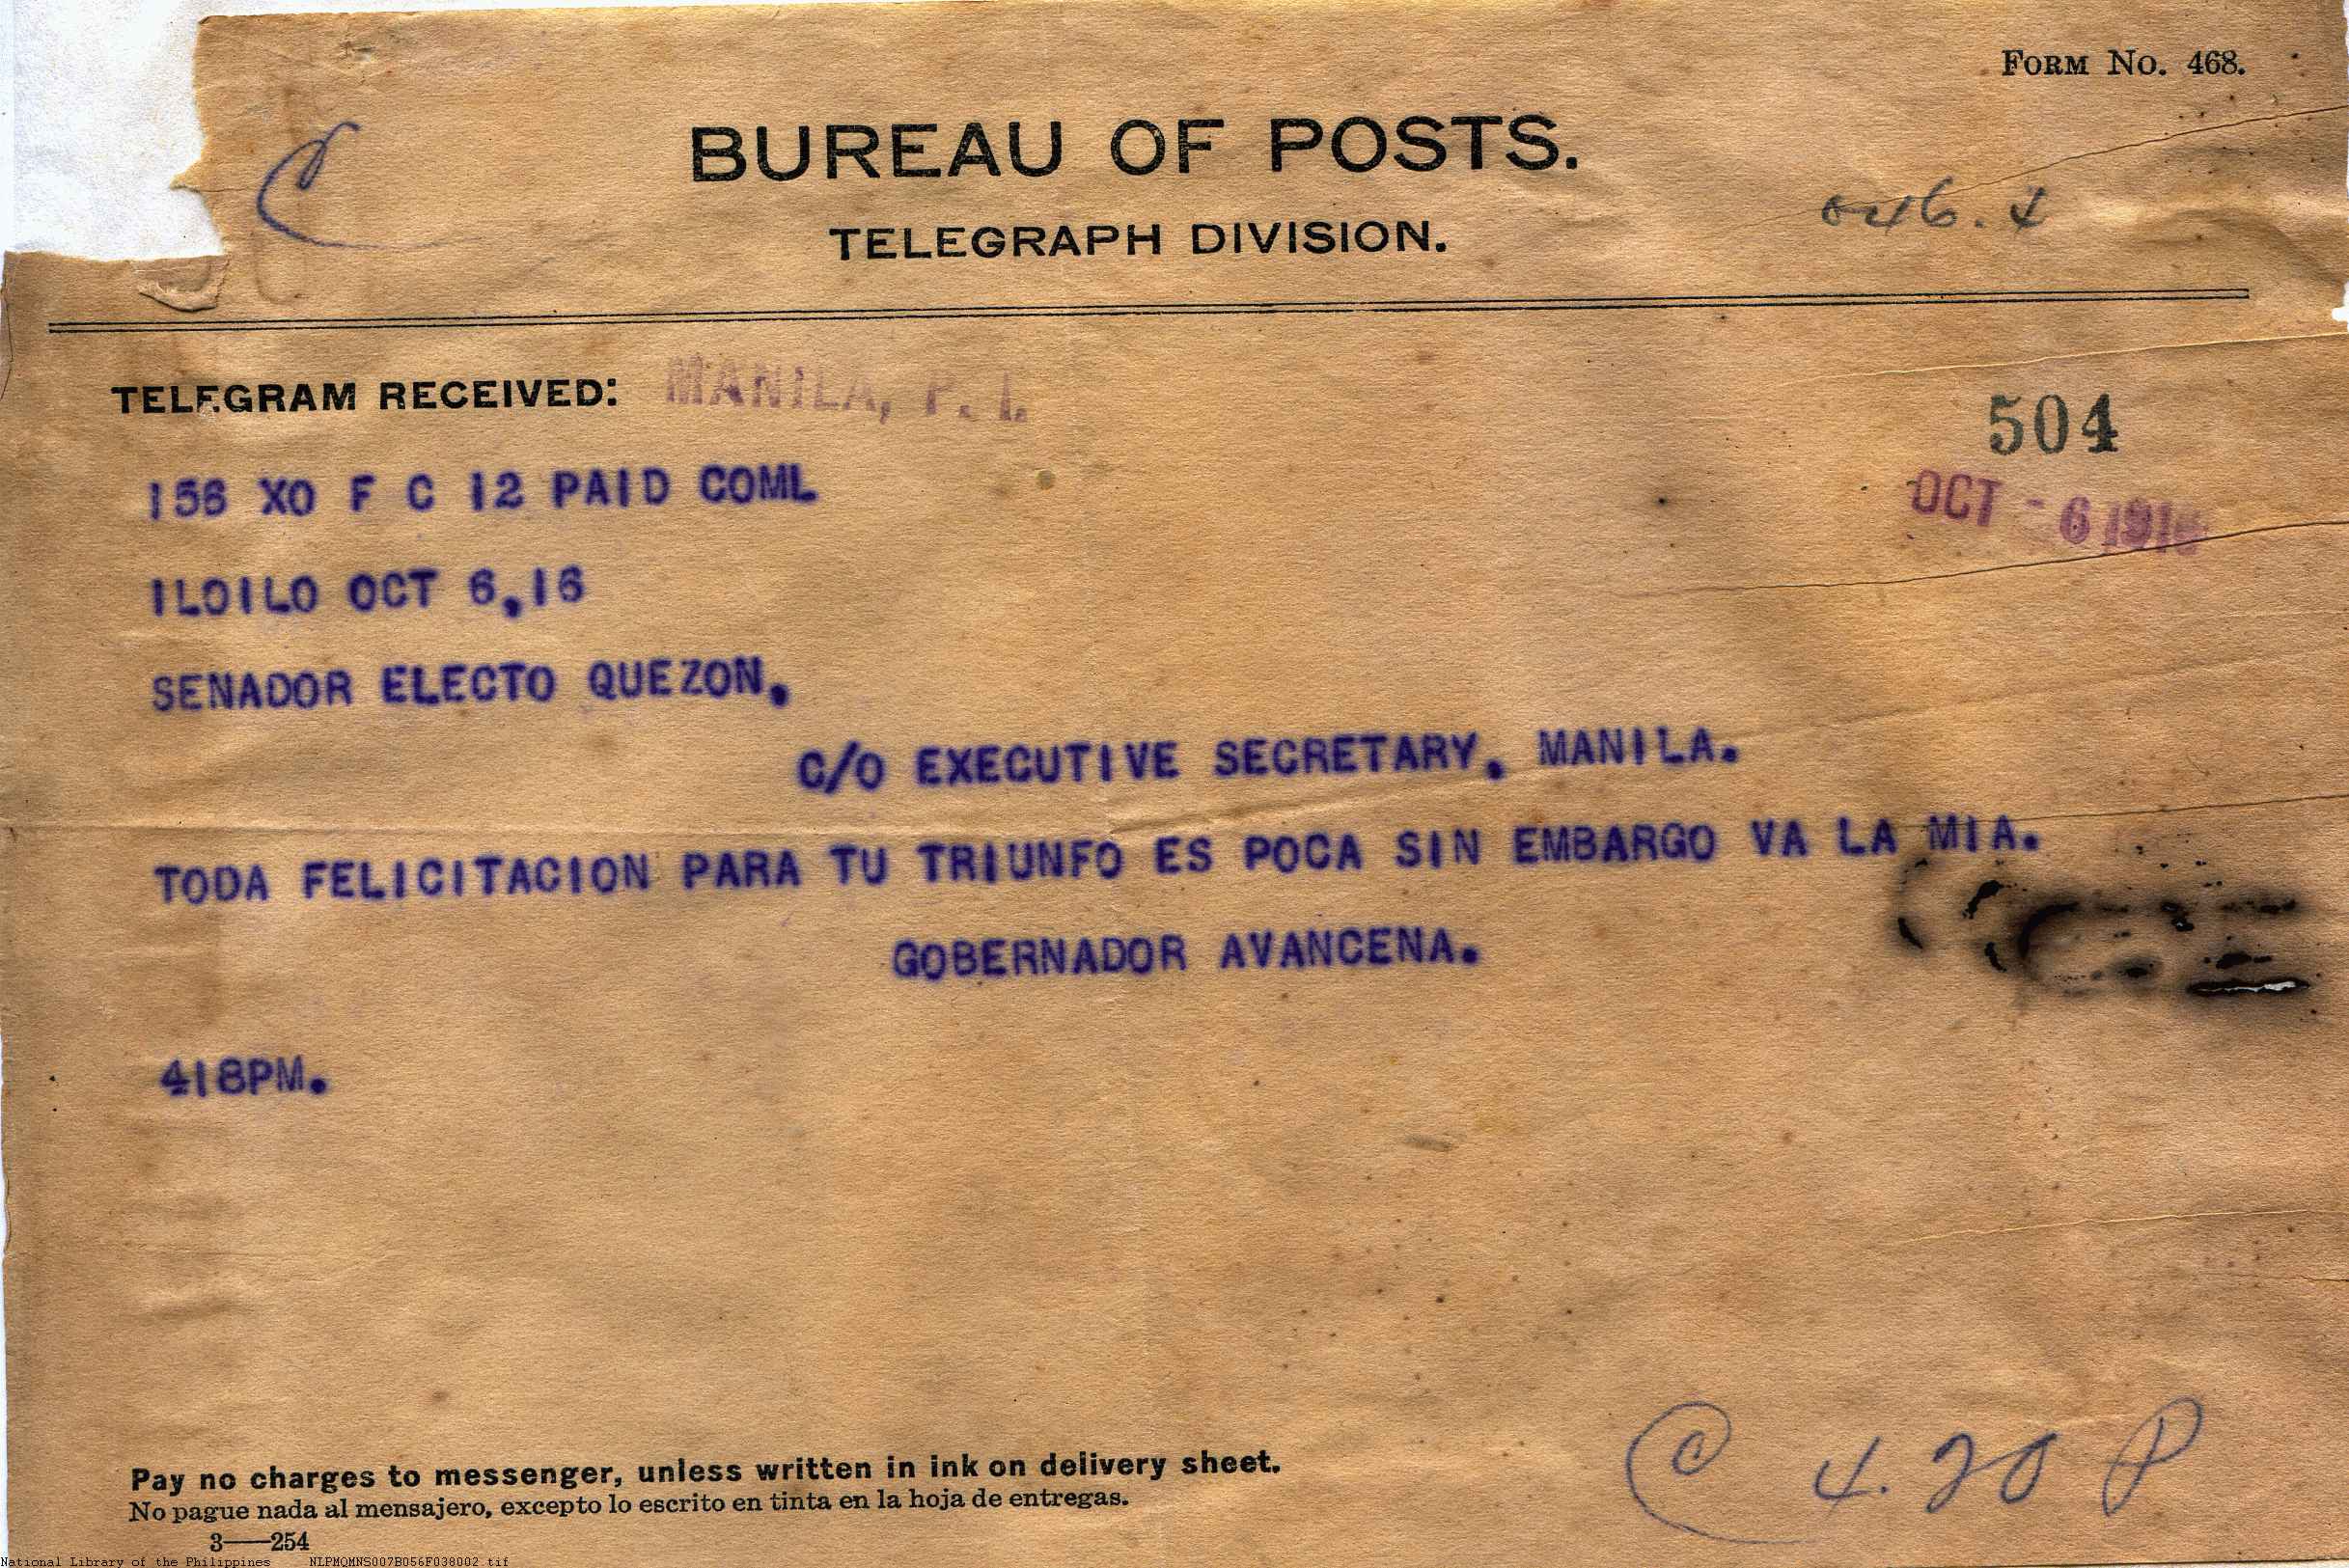 FORM No. 468.
BUREAU OF POSTS.
TELEGRAPH DIVISION.
C
TELEGRAM RECEIVED: MANILA, P. I.
504
OCT - 6 191
156 XO F C 12 PAID COML
ILOILO OCT 6,16
SENADOR ELECTO QUEZON,
C/O EXECUTIVE SECRETARY, MANILA.
TODA FELICITACION PARA TU TRIUNFO ES POCA SIN EMBARGO VA LA MIA.
GOBERNADOR AVANCENA.
418PM.
4.20 P
Pay no charges to messenger, unless written in ink on delivery sheet.
No pague nada al mensajero, excepto lo escrito en tinta en la hoja de entregas.
3—254
National Library of the Philippines NLPMQMNS007B056F038002.tif